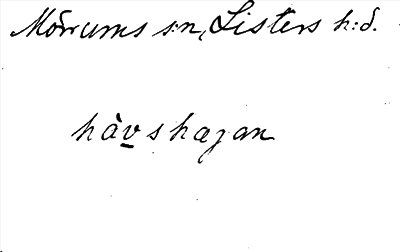 Mörrums s:n, Listers h:d.
hàvshagan